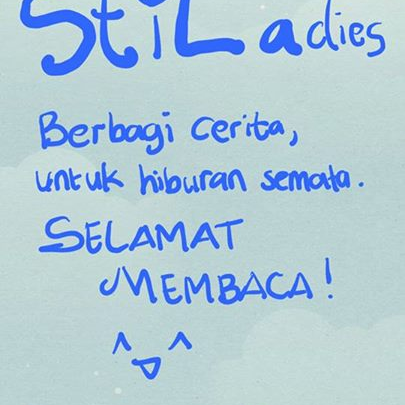 StiLadies
Berbagi cerita,
untuk hiburan semata.
SELAMAT
MEMBACA!